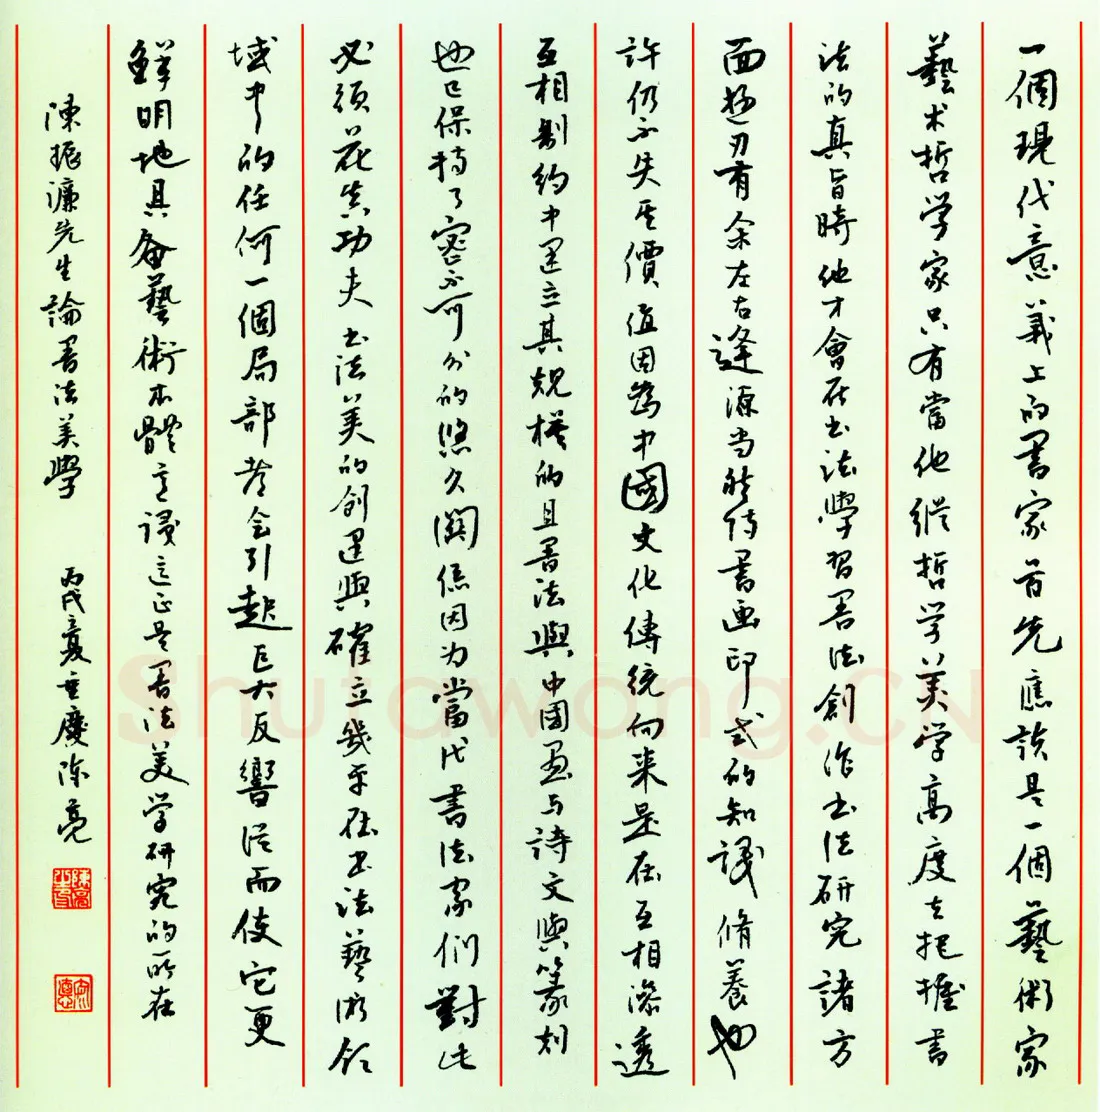 一個現代意義上的書家首先應該是一個藝術家
藝术哲学家只有當他從哲学美学高度去把握書
法的真旨時他才會在书法學習書法創作书法研究諸方
面遊刃有余左右逢源当然詩書画印式的知識脩養也
許仍不失其價值因爲中國文化傳統向来是在互相滲透
互相制約中建立其規模的且書法與中國画与詩文與篆刻
也已保持了密不可分的悠久関係因为當代書法家们對此
必须花真功夫书法美的创建與確立幾乎在书法藝術领
域中的任何一個局部都会引起巨大反響從而使它更
鮮明地具备藝術本體意識這正是書法美学研究的所在
陳振濂先生論書法美學 丙戌夏重慶陈亮
Shufawang.CN